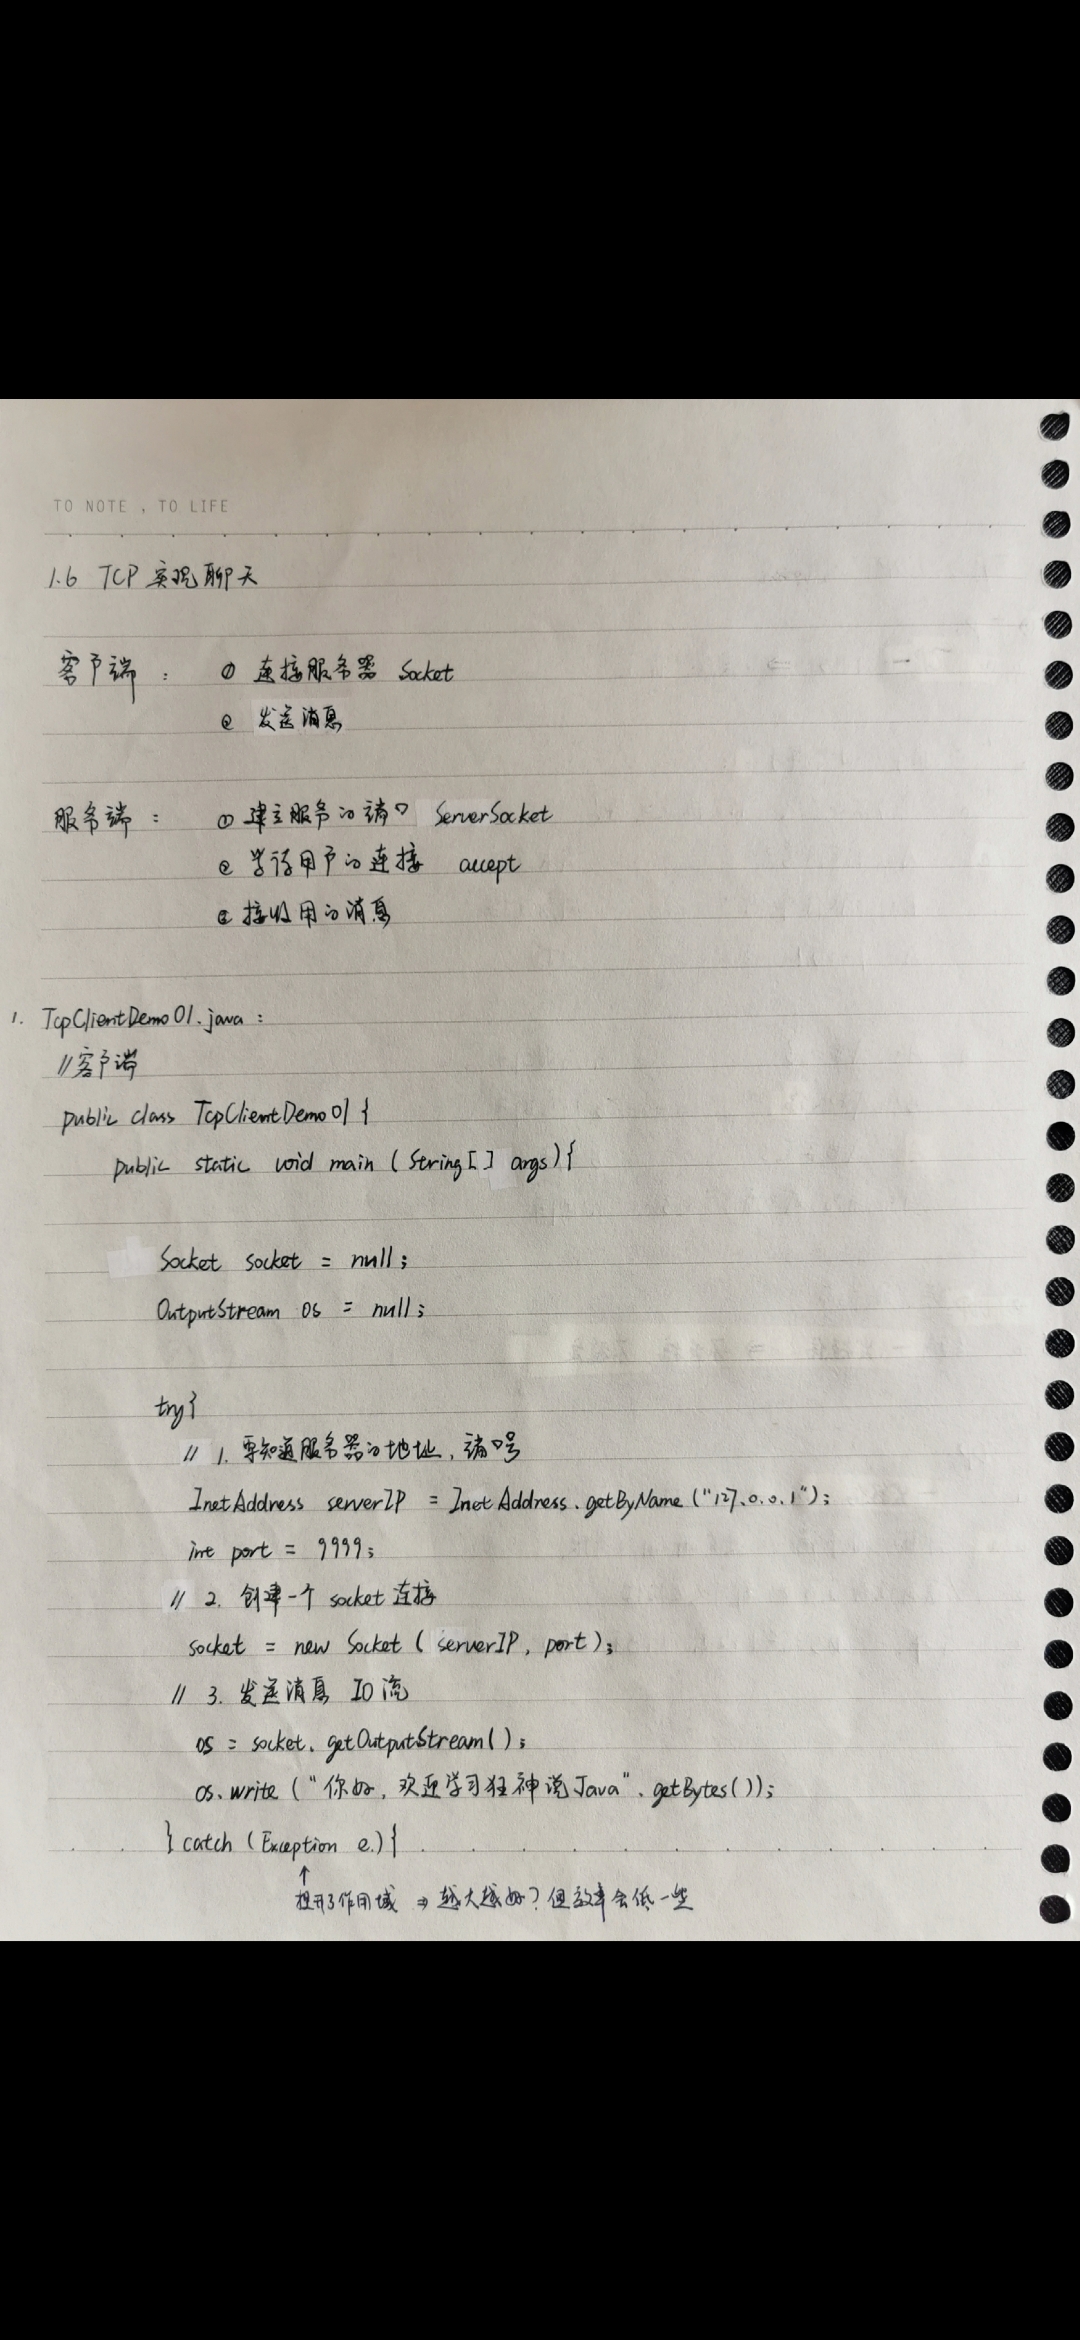 TO NOTE , TO LIFE
1.6 TCP 实现聊天
客户端 : ① 连接服务器 Socket
② 发送消息
服务端 : ① 建立服务的端口 ServerSocket
② 等待用户的连接 accept
③ 接收用的消息
1. TcpClientDemo01.java :
//客户端
public class TcpClientDemo01 {
public static void main (String[] args){
Socket socket = null;
OutputStream os = null;
try{
// 1. 要知道服务器的地址, 端口号
InetAddress serverIP = InetAddress.getByName("127.0.0.1");
int port = 9999;
// 2. 创建一个 socket 连接
socket = new Socket ( serverIP, port );
// 3. 发送消息 IO 流
os = socket.getOutputStream();
os.write ("你好, 欢迎学习狂神说Java".getBytes());
} catch (Exception e){
↑
提升了作用域 ⇒ 越大越好? 但效率会低一些